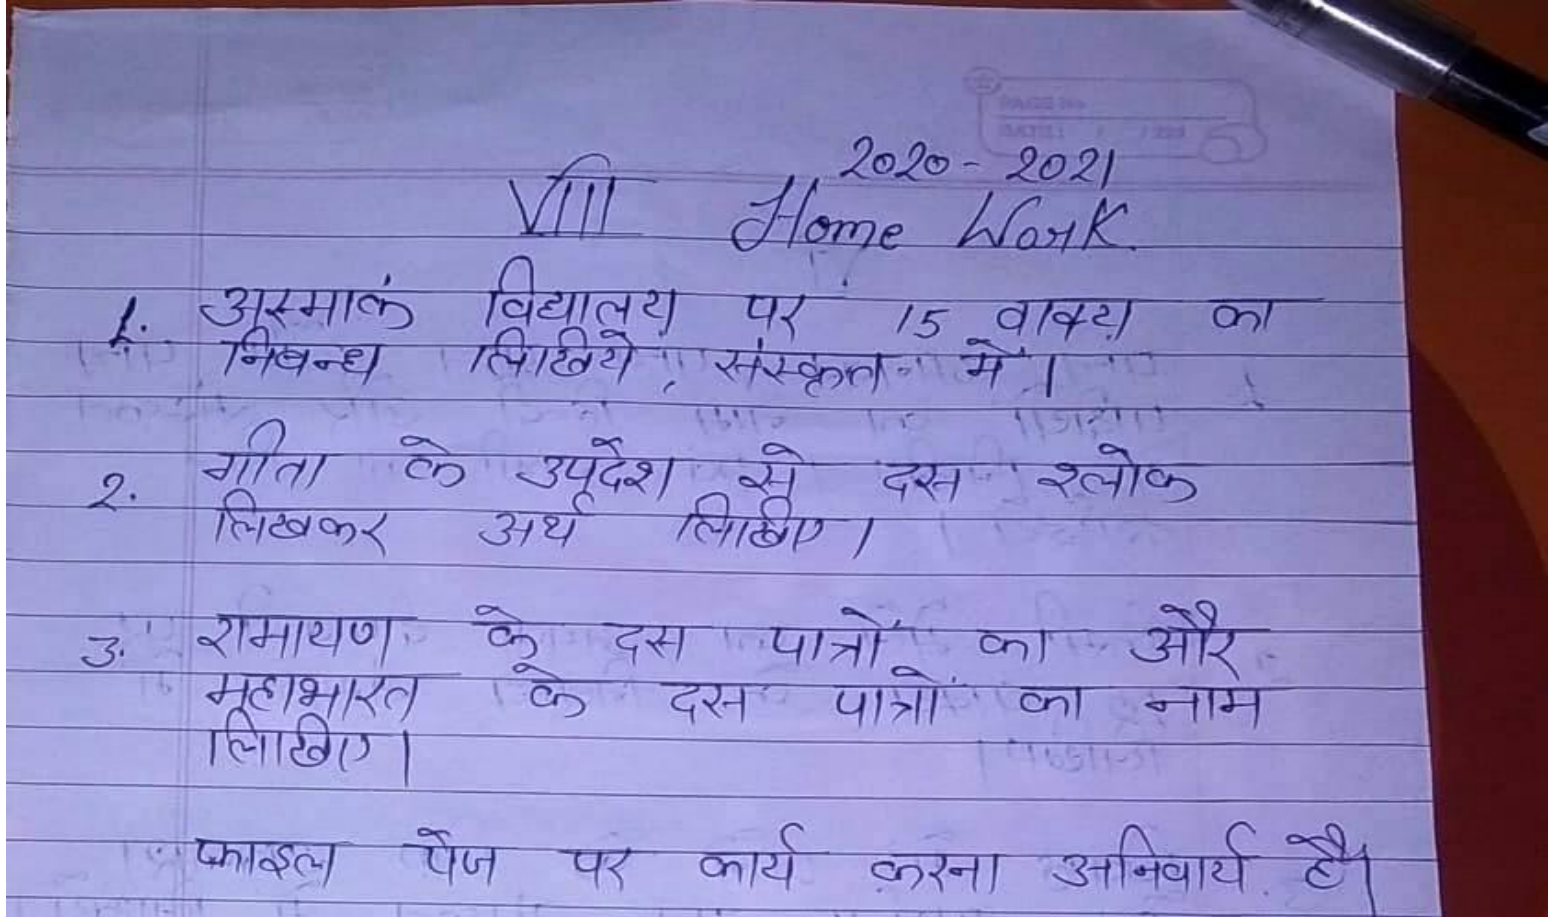 2020 - 2021
VIII Home Work.
1. अस्माकं विद्यालय पर 15 वाक्य का
निबन्ध लिखिये, संस्कृत में।
2. गीता के उपदेश से दस श्लोक
लिखकर अर्थ लिखिए।
3. रामायण के दस पात्रों का और
महाभारत के दस पात्रों का नाम
लिखिए।
फाइल पेज पर कार्य करना अनिवार्य है।